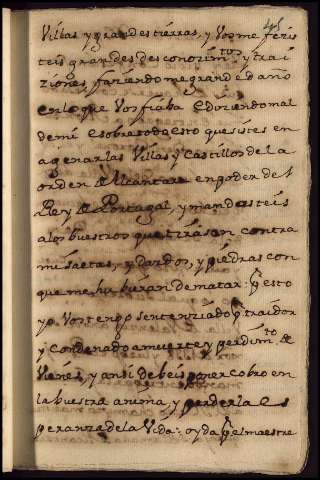 45
Villas y grandes tierras, y Vos me fezis
teis grandes desconocim^tos y trai
ziones, faziendome grande daño
en lo que Vos fiaba e diziendo mal
de mi e sobre todo esto quesistes en
agenar las Villas y Castillos de la
orden de Alcantara en poder del
Rey de Portugal, y mandasteis
a los buestros que tirasen contra
mi saetas, y dardos, y piedras con
que me hubieran de matar: q̃ esto
yo Vos tengo sentenziado q̃ traidor
y condenado a muerte y perdim^to de
Vienes, y ansi debeis poner cobro en
la buestra anima, y perder la es
peranza de la Vida: oyda q̃ el maestre